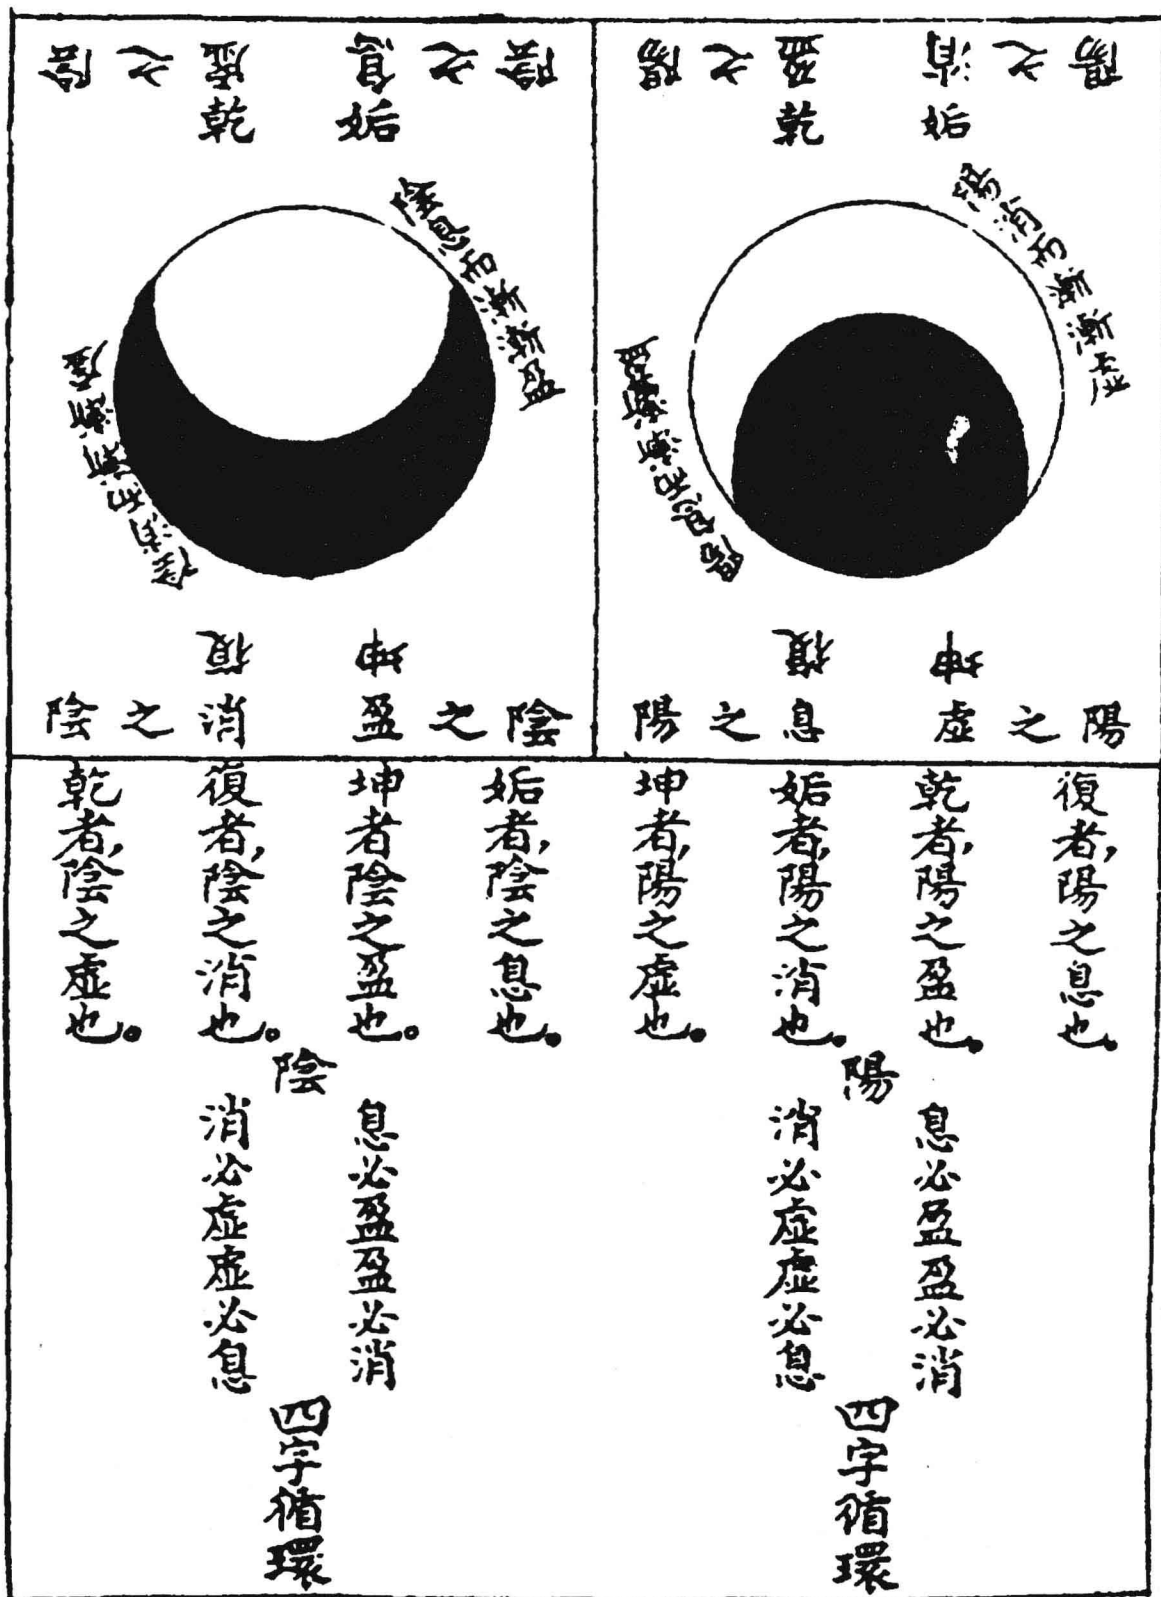 陽之消
姤
陽之盈
乾
陽消而漸漸虛
陽息而漸漸盈
坤
陽之虛
復
陽之息
陰之息
姤
陰之虛
乾
陰息而漸漸盈
陰消而漸漸虛
坤
陰之盈
復
陰之消
復者,陽之息也。
乾者,陽之盈也。
姤者,陽之消也。
坤者,陽之虛也。
陽
息必盈盈必消
消必虛虛必息
四字循環
姤者,陰之息也。
坤者陰之盈也。
復者,陰之消也。
乾者,陰之虛也。
陰
息必盈盈必消
消必虛虛必息
四字循環